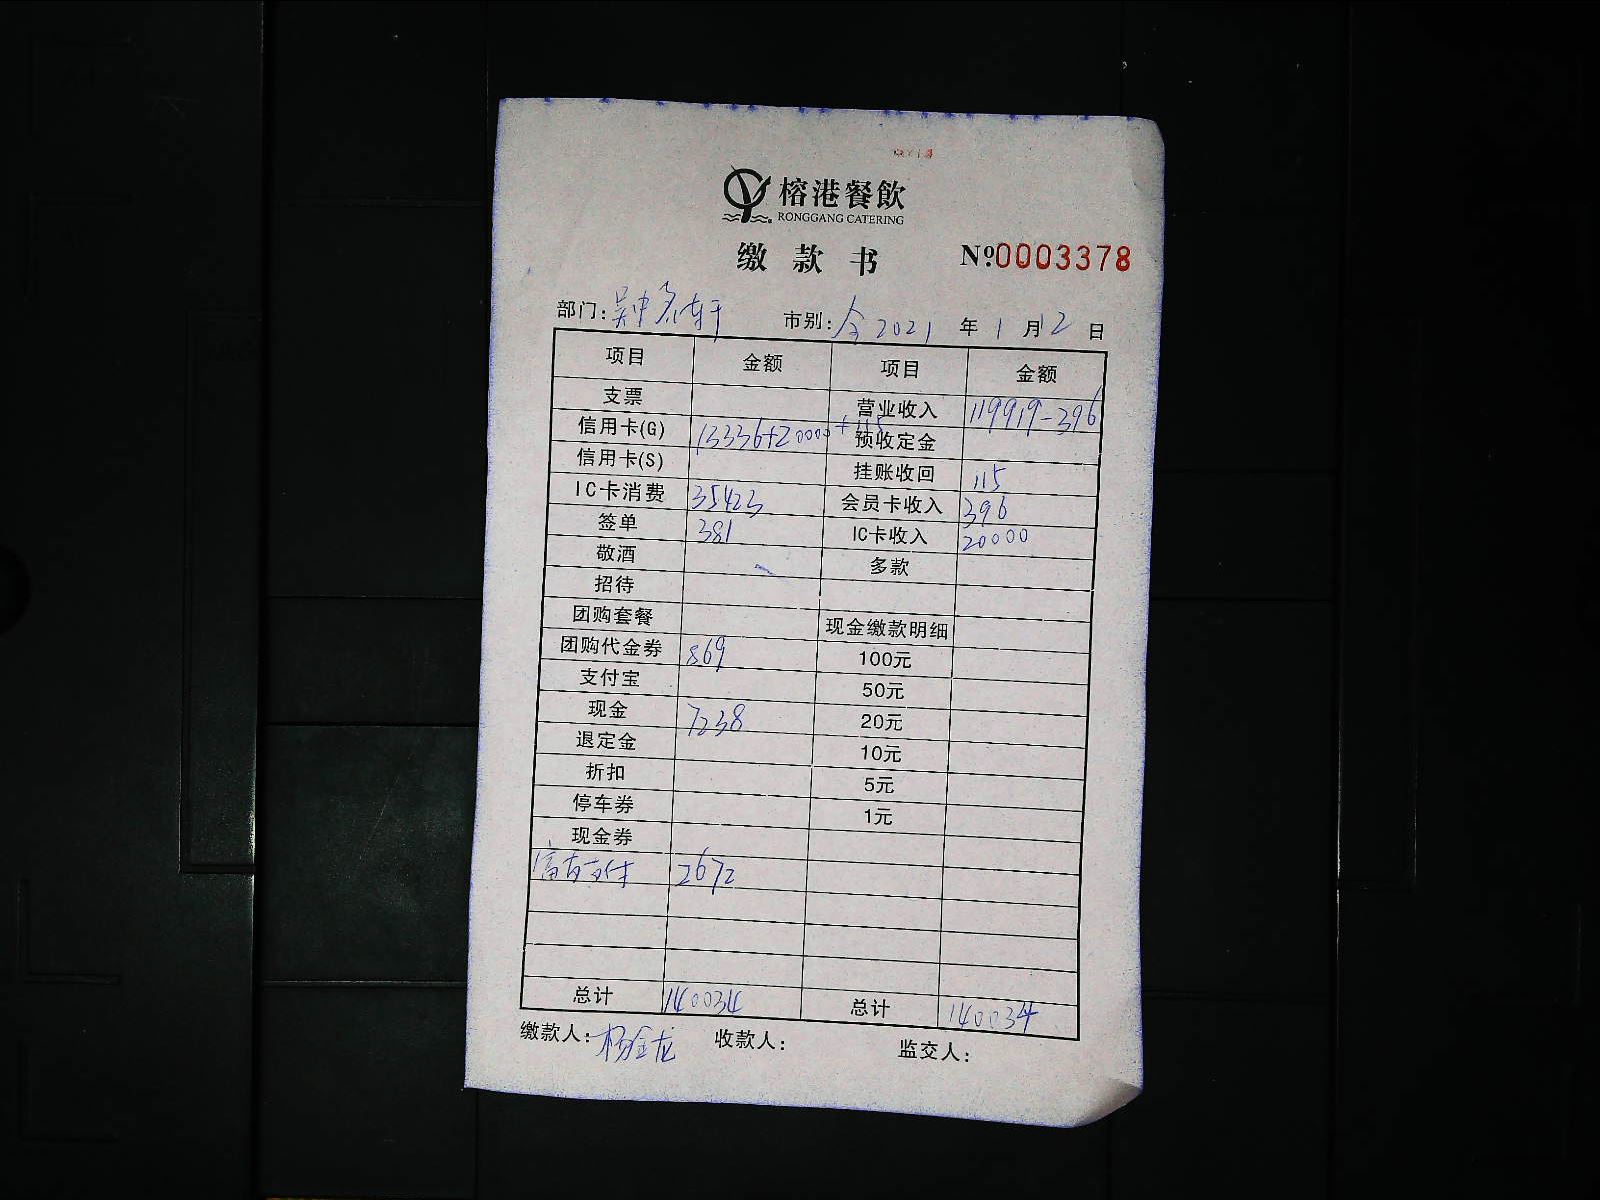 榕港餐飲
RONGGANG CATERING
缴款书 №0003378
部门: 吴中 市别: 全 2021 年 1 月 12 日
项目 金额 项目 金额
支票 营业收入 119919-396
信用卡(G) 73336+20000+115 预收定金
信用卡(S) 挂账收回 115
IC卡消费 35423 会员卡收入 396
签单 381 IC卡收入 20000
敬酒 多款
招待
团购套餐 现金缴款明细
团购代金券 869 100元
支付宝 50元
现金 7238 20元
退定金 10元
折扣 5元
停车券 1元
现金券
富友支付 2672
总计 140034 总计 140034
缴款人: 杨金龙 收款人: 监交人: